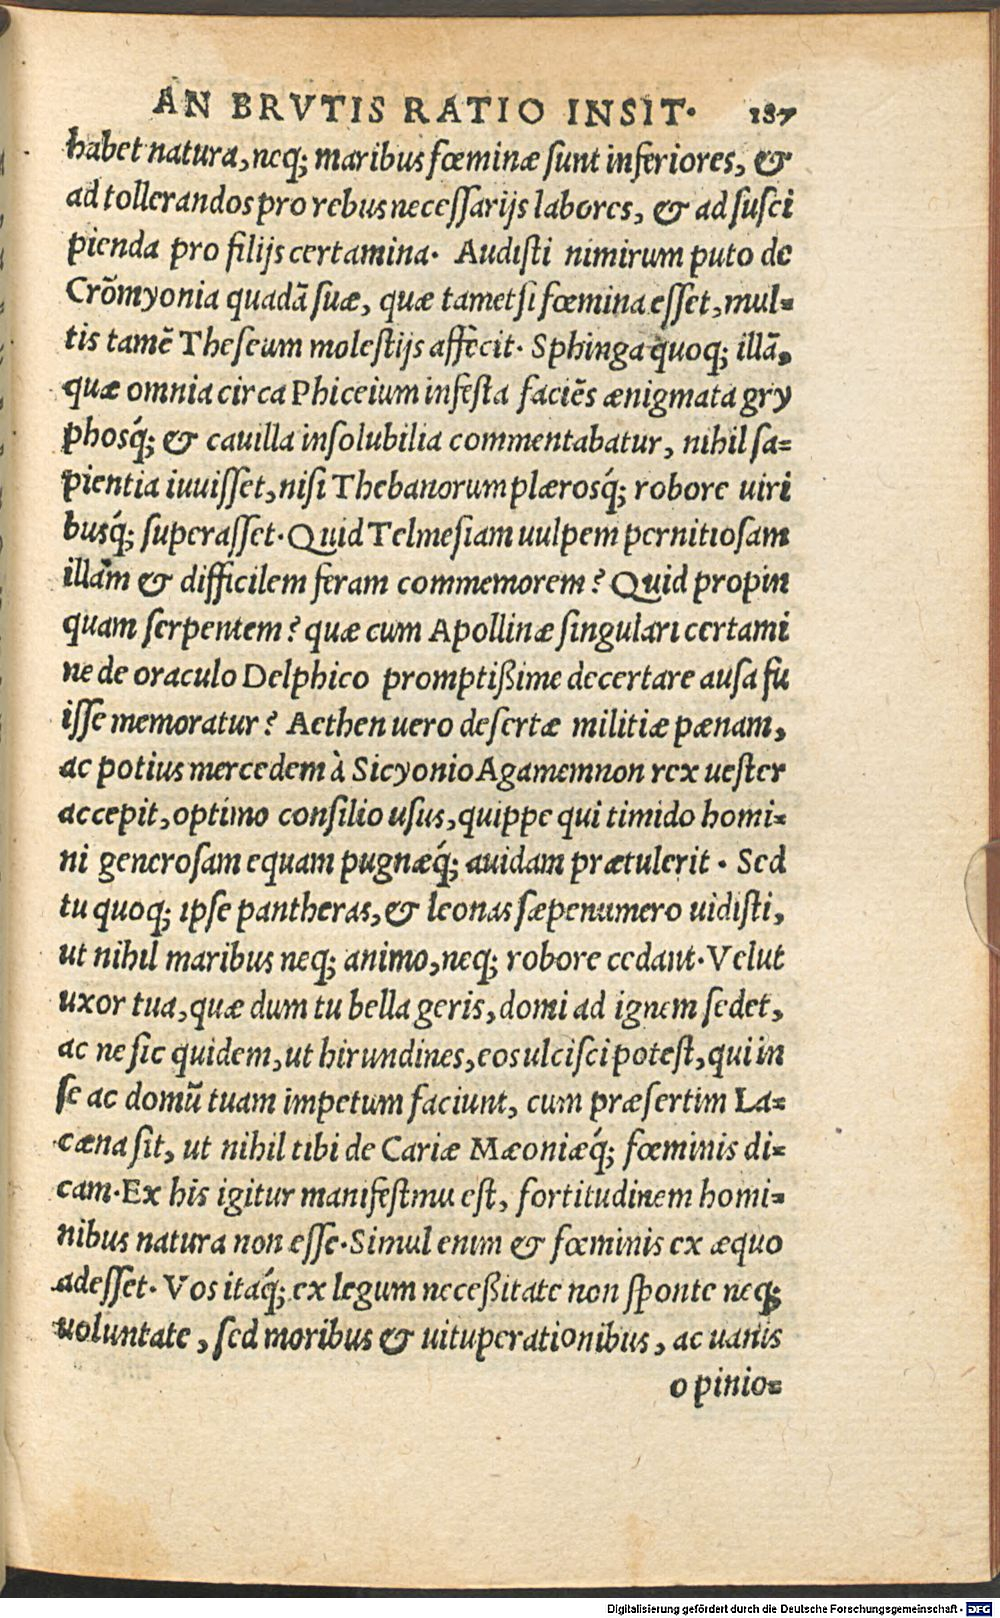 AN BRVTIS RATIO INSIT. 187
habet natura, neq; maribus fœminæ ſunt inferiores, &
ad tollerandos pro rebus neceſſarijs labores, & ad ſuſci
pienda pro filijs certamina. Audiſti nimirum puto de
Crõmyonia quadã ſue, quæ tametſi fœmina eſſet, mul=
tis tamẽ Theſeum moleſtijs affecit. Sphinga quoq; illã,
quæ omnia circa Phiceium infeſta faciẽs ænigmata gry
phosq́; & cavilla inſolubilia commentabatur, nihil ſa=
pientia iuuiſſet, niſi Thebanorum plærosq́; robore uiri
busq́; ſuperaſſet. Quid Telmeſiam uulpem pernitioſam
illam & difficilem feram commemorem? Quid propin
quam ſerpentem? quæ cum Apollinæ ſingulari certami
ne de oraculo Delphico promptißime decertare auſa fu
iſſe memoratur? Aethen uero deſertæ militiæ pænam,
ac potius mercedem à Sicyonio Agamemnon rex ueſter
accepit, optimo conſilio uſus, quippe qui timido homi=
ni generoſam equam pugnæq́; auidam prætulerit. Sed
tu quoq; ipſe pantheras, & leonas ſæpenumero uidiſti,
ut nihil maribus neq; animo, neq; robore cedant. Velut
uxor tua, quæ dum tu bella geris, domi ad ignem ſedet,
ac ne ſic quidem, ut hirundines, eos ulciſci poteſt, qui in
ſe ac domũ tuam impetum faciunt, cum præſertim La=
cæna ſit, ut nihil tibi de Cariæ Mæoniæq́; fœminis di=
cam. Ex his igitur manifeſtmu eſt, fortitudinem homi=
nibus natura non eſſe. Simul enim & fœminis ex æquo
adeſſet. Vos itaq́; ex legum neceßitate non ſponte neq;
uoluntate, ſed moribus & uituperationibus, ac uanis
opinio=
Digitalisierung gefördert durch die Deutsche Forschungsgemeinschaft - DFG